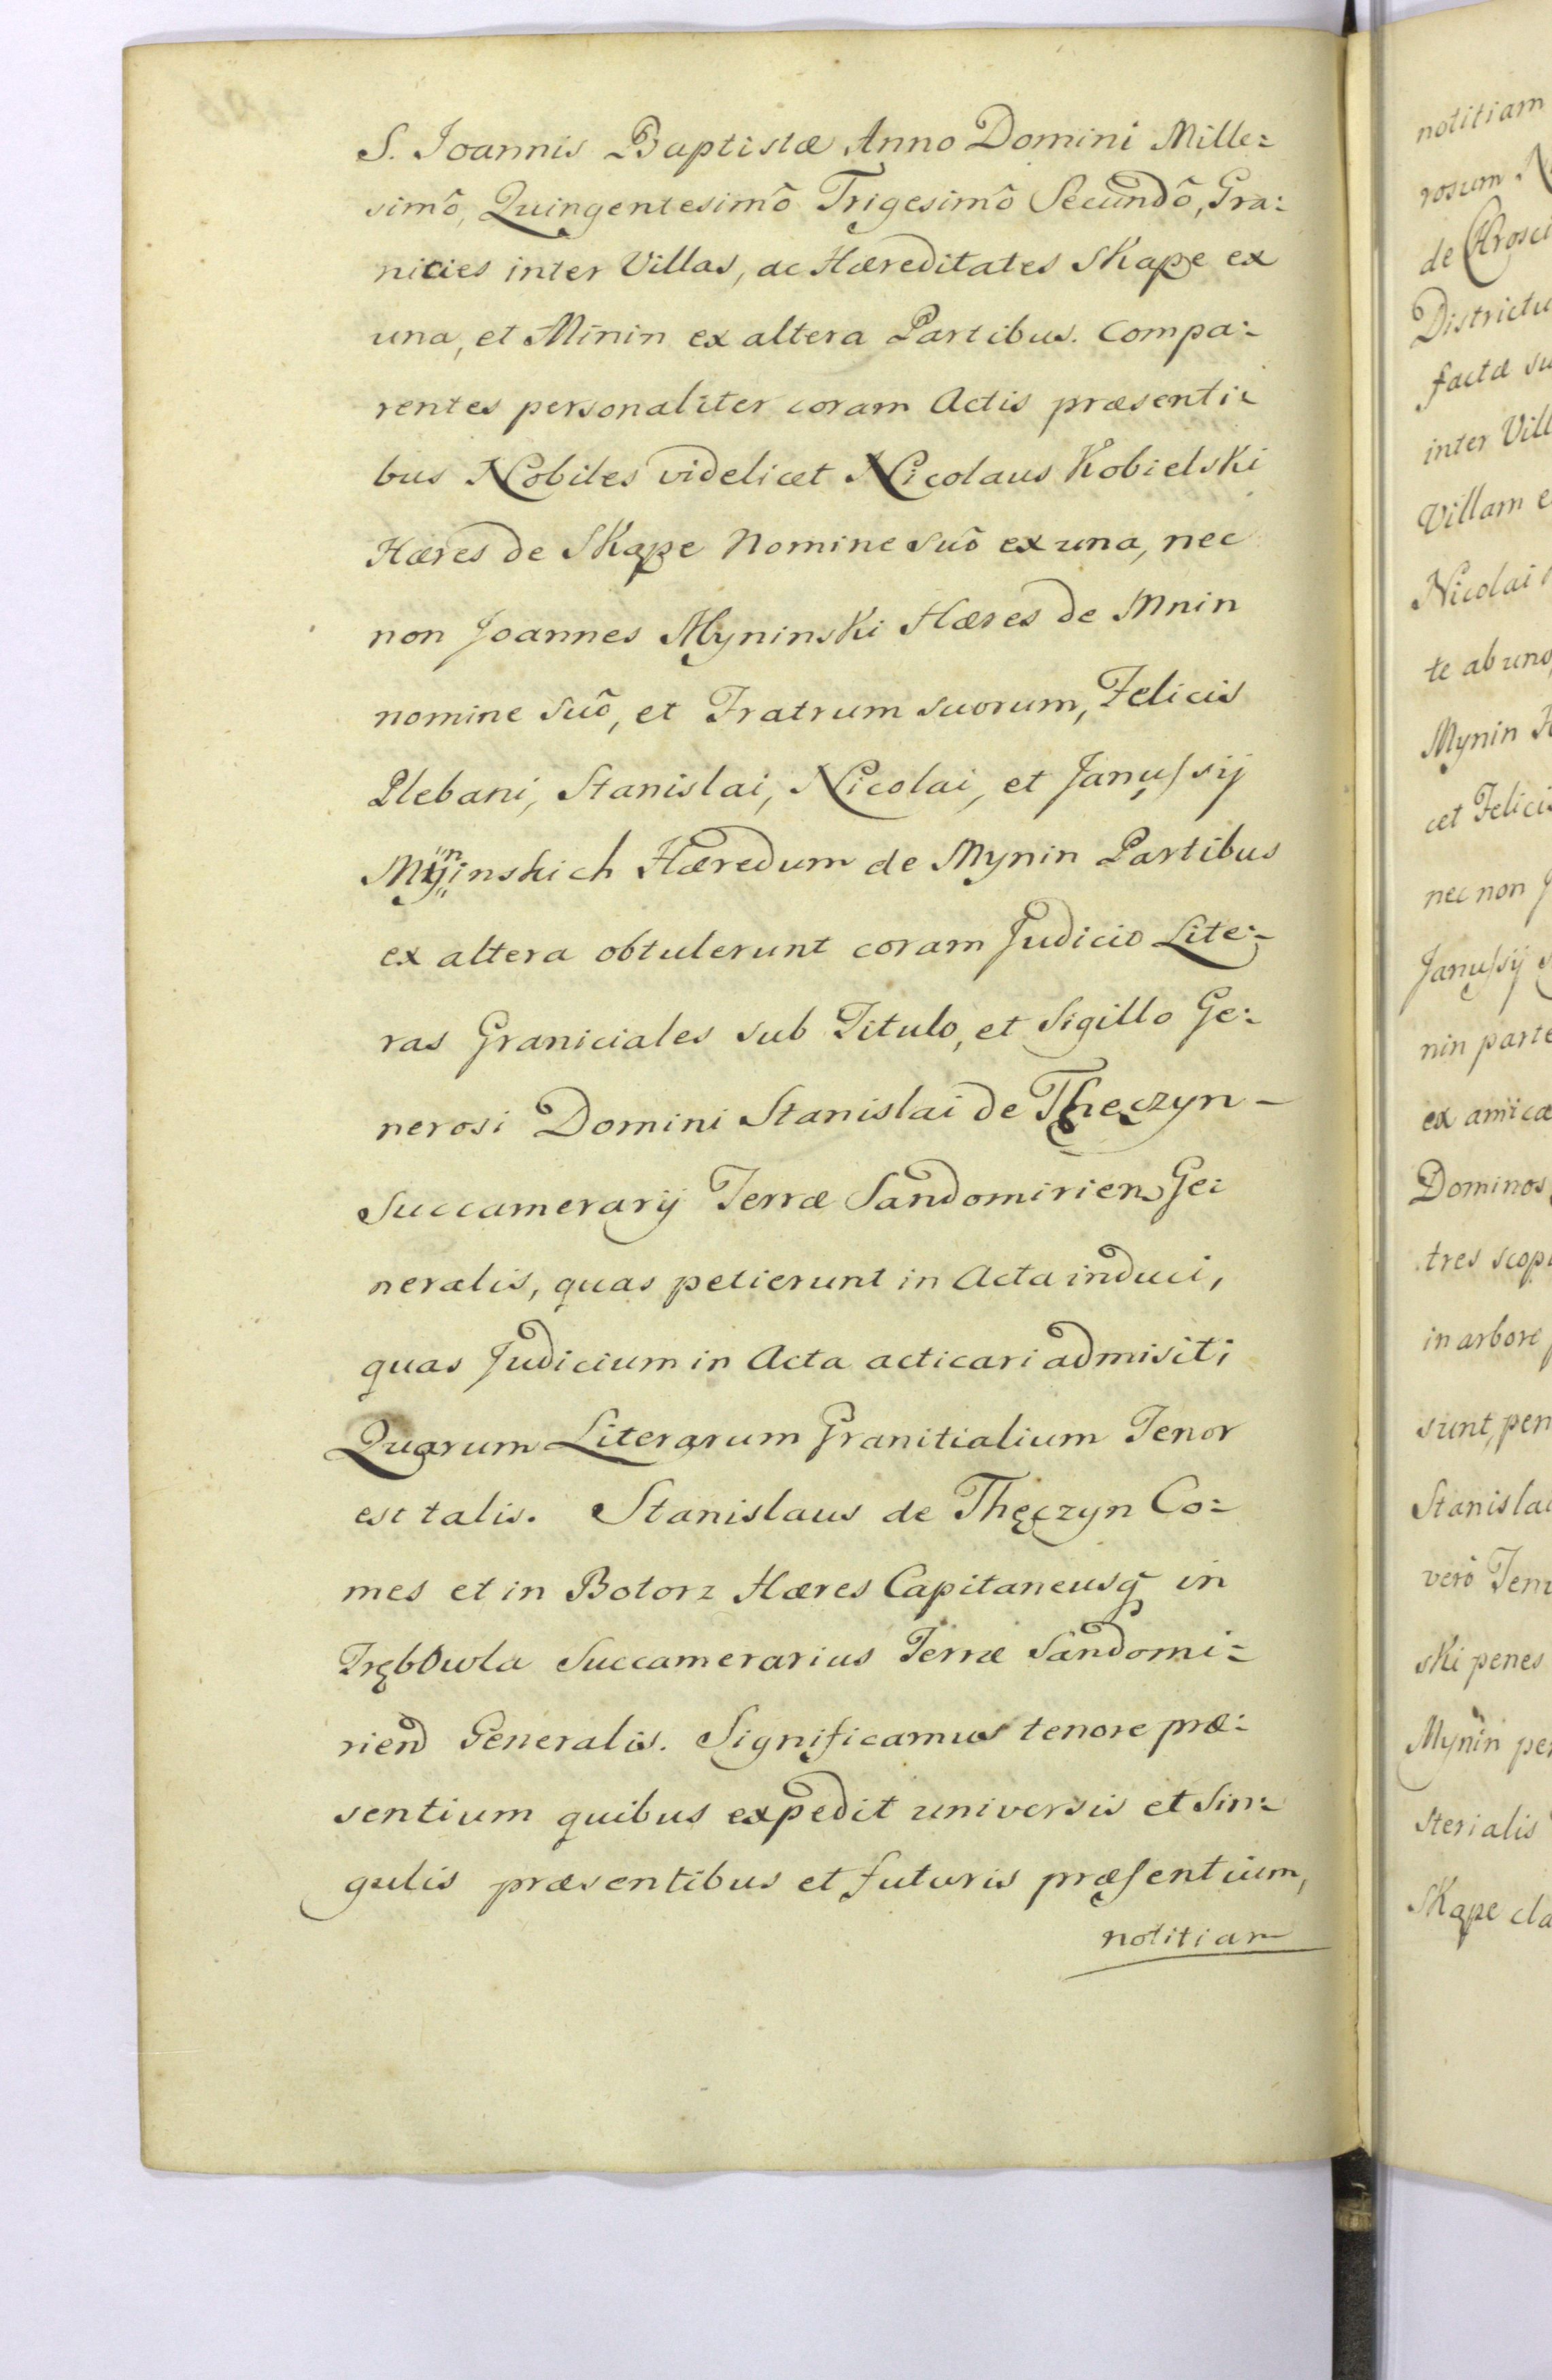 S. Joannis Baptistæ Anno Domini Mille=
simô, Quingentesimô Trigesimô Secundô, Gra=
nicies inter Villas, ac Hæreditates Skąpe ex
una, et Minin ex altera Partibus. Compa=
rentes personaliter coram Actis præsenti=
bus Nobiles videlicet Nicolaus Kobielski
Hæres de Skąpe Nomine suô ex una, nec
non Joannes Myninski Hæres de Mnin
nomine suô, et Fratrum suorum, Felicis
Plebani, Stanislai, Nicolai, et Janussij
Myninskich Hæredum de Mynin Partibus
ex altera obtulerunt coram Judicio Lite=
ras Graniciales sub Titulo, et Sigillo Ge=
nerosi Domini Stanislai de Thęczyn -
Succamerarij Terræ Sandomirien Ge=
neralis, quas petierunt in Acta induci,
quas Judicium in Acta acticari admisit;
Quarum Literarum Granitialium Tenor
est talis. Stanislaus de Thęczyn Co=
mes et in Botorz Hæres Capitaneusq in
Trębowla Succamerarius Terræ Sandomi=
rien Generalis. Significamus tenore præ=
sentium quibus expedit universis et sin=
gulis præsentibus et futuris præsentium,
notitiam
notitiam
rosum
de
Districtu
factæ su
inter Vill
Villam e
Nicolai
te ab uno
Mynin
cet Felicis
nec non
Janussij
nin parte
ex amica
Dominos
tres scop
in arbore
sunt, pen
Stanislai
verô
ski penes
Mynin pe
sterialis
Skąpe cla